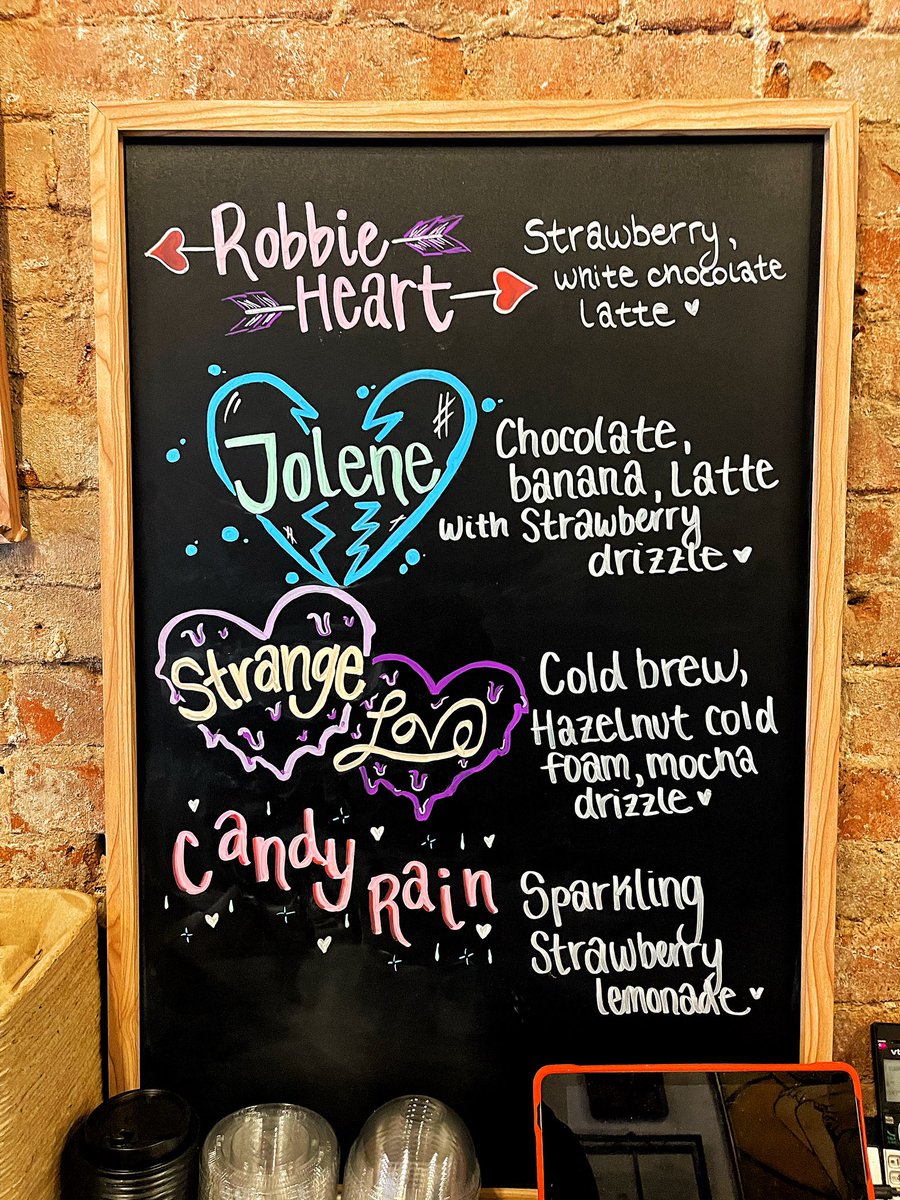 Robbie
Heart
Strawberry,
white chocolate
latte
Jolene
Chocolate,
banana, Latte
with Strawberry
drizzle
Strange
Love
Cold brew,
Hazelnut cold
foam, mocha
drizzle
Candy
Rain
Sparkling
Strawberry
lemonade